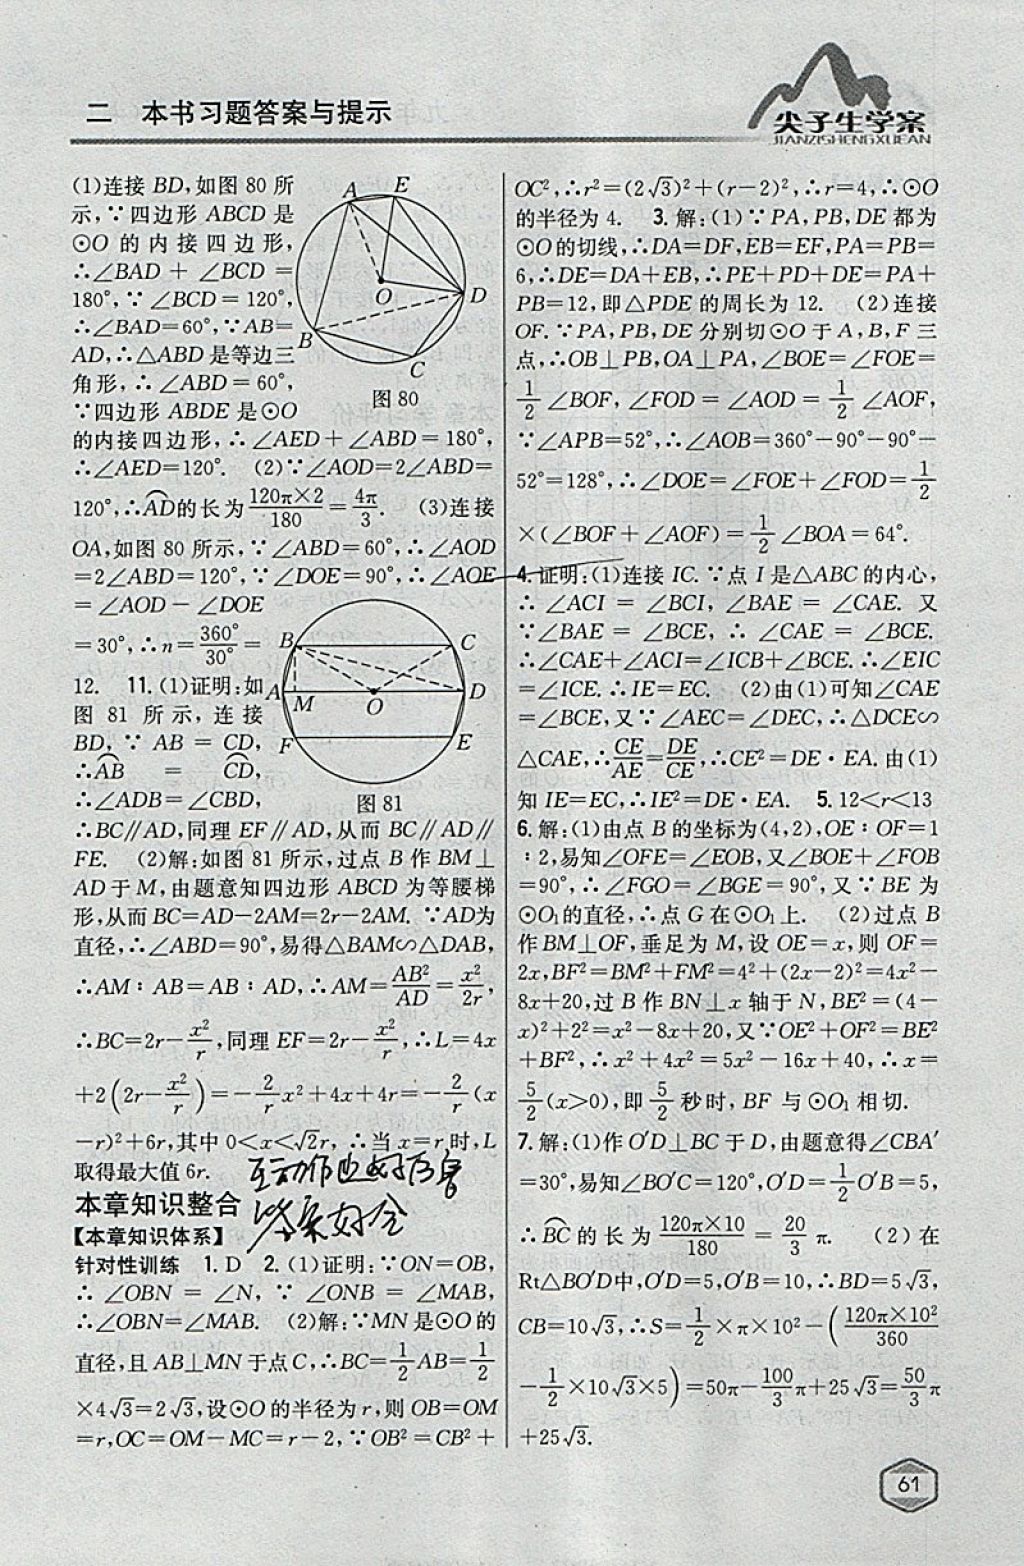 二 本书习题答案与提示
尖子生学案
JIANZISHENGXUEAN
(1)连接 BD,如图 80 所
示,∵四边形 ABCD 是
⊙O 的内接四边形,
∴∠BAD + ∠BCD =
180°,∵∠BCD=120°,
∴∠BAD=60°,∵AB=
AD,∴△ABD是等边三
角形,∴∠ABD=60°,
∵四边形 ABDE 是⊙O
A E O D B C
图 80
的内接四边形,∴∠AED+∠ABD=180°,
∴∠AED=120°. (2)∵∠AOD=2∠ABD=
120°,∴⌒AD的长为 120π×2/180 = 4π/3. (3)连接
OA,如图 80 所示,∵∠ABD=60°,∴∠AOD
=2∠ABD=120°,∵∠DOE=90°,∴∠AOE
=∠AOD-∠DOE
=30°,∴n= 360°/30° =
12. 11.(1)证明:如
图 81 所示,连接
BD,∵ AB = CD,
∴⌒AB = ⌒CD,
∴∠ADB=∠CBD,
B C A M O D F E
图 81
∴BC∥AD,同理 EF∥AD,从而 BC∥AD∥
FE. (2)解:如图 81 所示,过点 B 作 BM⊥
AD于 M,由题意知四边形 ABCD 为等腰梯
形,从而 BC=AD-2AM=2r-2AM. ∵AD为
直径,∴∠ABD=90°,易得△BAM∽△DAB,
∴AM∶AB=AB∶AD,∴AM= AB²/AD = x²/2r,
∴BC=2r- x²/r,同理 EF=2r- x²/r,∴L=4x
+2(2r- x²/r)=- 2/r x²+4x+4r=- 2/r (x
-r)²+6r,其中 0<x<√2r, ∴当 x=r 时,L
取得最大值 6r.
本章知识整合
【本章知识体系】
针对性训练 1. D 2. (1)证明:∵ON=OB,
∴ ∠OBN = ∠N, ∵ ∠ONB = ∠MAB,
∴∠OBN=∠MAB. (2)解:∵MN是⊙O的
直径,且 AB⊥MN 于点C,∴BC= 1/2 AB= 1/2
×4√3=2√3,设⊙O 的半径为 r,则 OB=OM
=r,OC=OM-MC=r-2,∵OB²=CB²+
OC²,∴r²=(2√3)²+(r-2)²,∴r=4,∴⊙O
的半径为 4. 3. 解:(1)∵PA,PB,DE 都为
⊙O的切线,∴DA=DF,EB=EF,PA=PB=
6,∴DE=DA+EB,∴PE+PD+DE=PA+
PB=12,即△PDE 的周长为 12. (2)连接
OF. ∵PA,PB,DE 分别切⊙O 于 A,B,F 三
点,∴OB⊥PB,OA⊥PA,∠BOE=∠FOE=
1/2 ∠BOF,∠FOD = ∠AOD = 1/2 ∠AOF,
∵∠APB=52°,∴∠AOB=360°-90°-90°-
52°=128°,∴∠DOE=∠FOE+∠FOD= 1/2
×(∠BOF+∠AOF)= 1/2 ∠BOA=64°.
4. 证明:(1)连接 IC. ∵点 I 是△ABC的内心,
∴ ∠ACI = ∠BCI, ∠BAE = ∠CAE. 又
∵∠BAE = ∠BCE, ∴ ∠CAE = ∠BCE.
∴∠CAE+∠ACI=∠ICB+∠BCE. ∴∠EIC
=∠ICE. ∴IE=EC. (2)由(1)可知∠CAE
=∠BCE,又∵∠AEC=∠DEC,∴△DCE∽
△CAE,∴ CE/AE = DE/CE,∴CE²=DE·EA. 由(1)
知 IE=EC,∴IE²=DE·EA. 5. 12<r<13
6. 解:(1)由点 B 的坐标为(4,2),OE∶OF=1
∶2,易知∠OFE=∠EOB,又∠BOE+∠FOB
=90°,∴∠FGO=∠BGE=90°,又∵BE 为
⊙O₁的直径,∴点 G 在⊙O₁上. (2)过点 B
作 BM⊥OF,垂足为 M,设 OE=x,则 OF=
2x,BF²=BM²+FM²=4²+(2x-2)²=4x²-
8x+20,过 B 作 BN⊥x 轴于 N,BE²=(4-
x)²+2²=x²-8x+20,又∵OE²+OF²=BE²
+BF²,∴x²+4x²=5x²-16x+40,∴x=
5/2 (x>0),即 5/2 秒时,BF 与⊙O₁ 相切.
7. 解:(1)作 O′D⊥BC 于 D,由题意得∠CBA′
=30°,易知∠BO′C=120°,O′D= 1/2 O′B=5,
∴⌒BC 的长为 120π×10/180 = 20/3 π. (2)在
Rt△BO′D中,O′D=5,O′B=10,∴BD=5√3,
CB=10√3,∴S= 1/2 ×π×10²-( 120π×10²/360
- 1/2 ×10√3×5)=50π- 100/3 π+25√3= 50/3 π
+25√3.
61